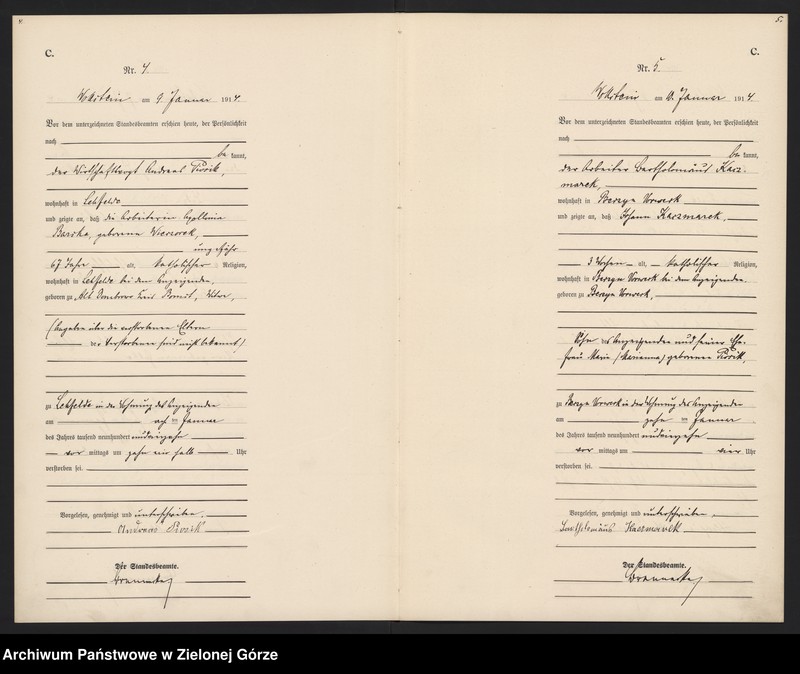 C.
Nr. 4.
Wollstein am 9. Januar 1914.
Vor dem unterzeichneten Standesbeamten erschien heute, der Persönlichkeit
nach
be kannt,
der Wirtschaftsvogt Andreas Piosik
wohnhaft in Lehfelde
und zeigte an, daß die Arbeiterin Apollonia
Barska, geborene Wieczorek,
ungefähr
67 Jahre alt, katholischer Religion,
wohnhaft in Lehfelde bei dem Anzeigenden,
geboren zu Alt Dombrowo Kreis Bomst, Witwe,
(Angaben über die verstorbenen Eltern
der Verstorbenen sind nicht bekannt)
zu Lehfelde in der Wohnung des Anzeigenden
am acht ten Januar
des Jahres tausend neunhundert undvierzehn
vor mittags um zehn ein halb Uhr
verstorben sei.
Vorgelesen, genehmigt und unterschrieben.
Andreas Piosik
Der Standesbeamte.
C.
5.
Nr. 5.
Wollstein am 10. Januar 1914
Vor dem unterzeichneten Standesbeamten erschien heute, der Persönlichkeit
nach
be kannt,
der Arbeiter Bartholomäus Kacz-
marek,
wohnhaft in Berzyn Vorwerk
und zeigte an, daß Johann Kaczmarek,
3 Wochen alt, katholischer Religion,
wohnhaft in Berzyn Vorwerk bei dem Anzeigenden
geboren zu Berzyn Vorwerk,
Sohn des Anzeigenden und seiner Ehe-
frau Marie (Marianna) geborenen Piosik,
zu Berzyn Vorwerk in der Wohnung des Anzeigenden
am zehn ten Januar
des Jahres tausend neunhundert undvierzehn
vor mittags um vier Uhr
verstorben sei.
Vorgelesen, genehmigt und unterschrieben.
Bartholomäus Kaczmarek
Der Standesbeamte.
Archiwum Państwowe w Zielonej Górze